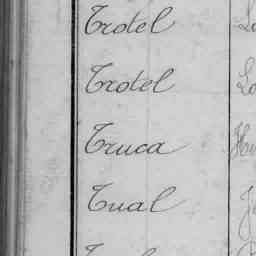 Trotel
Trotel
Truca
Tual